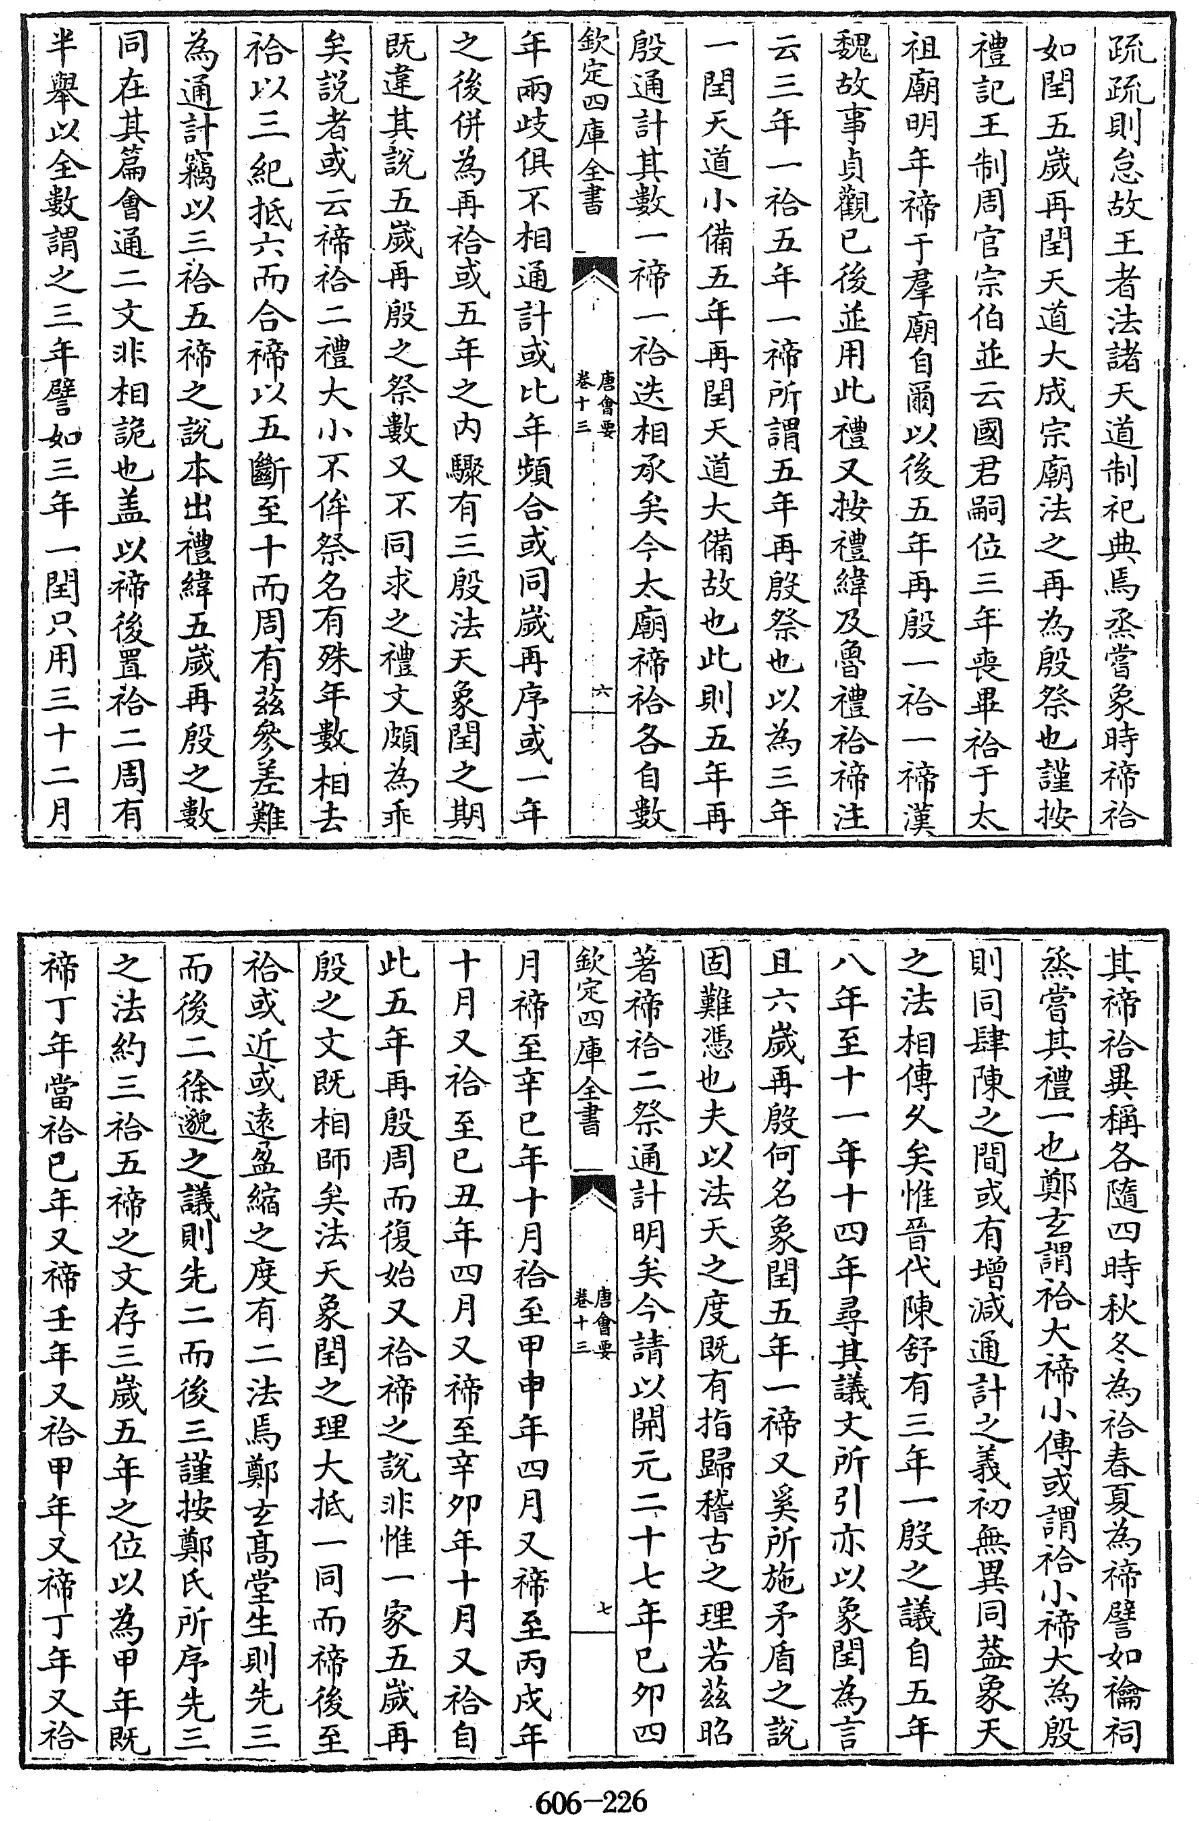 疏疏則怠故王者法諸天道制祀典焉烝嘗象時禘祫
如閏五歲再閏天道大成宗廟法之再為殷祭也謹按
禮記王制周官宗伯並云國君嗣位三年喪畢祫于太
祖廟明年禘于羣廟自爾以後五年再殷一祫一禘漢
魏故事貞觀已後並用此禮又按禮緯及魯禮祫禘注
云三年一祫五年一禘所謂五年再殷祭也以為三年
一閏天道小備五年再閏天道大備故也此則五年再
殷通計其數一禘一祫迭相承矣今太廟禘祫各自數
欽定四庫全書
唐會要
卷十三
六
年兩歧俱不相通計或比年頻合或同歲再序或一年
之後併為再祫或五年之內驟有三殷法天象閏之期
既違其說五歲再殷之祭數又不同求之禮文頗為乖
矣說者或云禘祫二禮大小不侔祭名有殊年數相去
祫以三紀抵六而合禘以五斷至十而周有茲參差難
為通計竊以三祫五禘之說本出禮緯五歲再殷之數
同在其篇會通二文非相詭也蓋以禘後置祫二周有
半舉以全數謂之三年譬如三年一閏只用三十二月
其禘祫異稱各隨四時秋冬為祫春夏為禘譬如禴祠
烝嘗其禮一也鄭玄謂祫大禘小傳或謂祫小禘大為殷
則同肆陳之間或有增減通計之義初無異同蓋象天
之法相傳久矣惟晉代陳舒有三年一殷之議自五年
八年至十一年十四年尋其議文所引亦以象閏為言
且六歲再殷何名象閏五年一禘又奚所施矛盾之說
固難憑也夫以法天之度既有指歸稽古之理若茲昭
著禘祫二祭通計明矣今請以開元二十七年己卯四
欽定四庫全書
唐會要
卷十三
七
月禘至辛巳年十月祫至甲申年四月又禘至丙戌年
十月又祫至己丑年四月又禘至辛卯年十月又祫自
此五年再殷周而復始又祫禘之說非惟一家五歲再
殷之文既相師矣法天象閏之理大抵一同而禘後至
祫或近或遠盈縮之度有二法焉鄭玄高堂生則先三
而後二徐邈之議則先二而後三謹按鄭氏所序先三
之法約三祫五禘之文存三歲五年之位以為甲年既
禘丁年當祫已年又禘壬年又祫甲年又禘丁年又祫
606-226